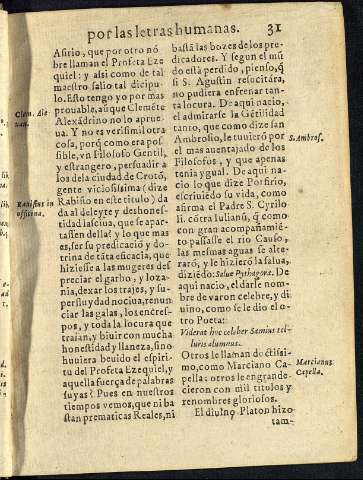 por las letras humanas. 31
Asirio, que por otro nó
bre llaman el Profeta Eze
quiel: y asi como de tal
maestro salio tal dicipu
lo. Esto tengo yo por mas
prouable, aũque Cleméte
Alexádrino no lo aprue
ua. Y no es verisimil otra
cosa, porq̃ como era pos
sible, vn Filosofo Gentil,
y estrangero, persuadir a
los dela ciudad de Crotó,
gente viciosissima (dize
Rabisio en este titulo) da
da al deleyte y deshones-
tidad lasciua, que se apar-
tassen della! y lo que mas
es, ser su predicació y doc-
trina de táta eficacia, que
hiziesse a las mugeres des
preciar el garbo, y loza-
nia, dexar los trajes, y su-
perfluydad nociua, renun
ciar las galas, los encres-
pos, y toda la locura que
traian, y biuir con mucha
honestidad y llaneza, sino
huuiera beuido el espiri-
tu del Profeta Ezequiel, y
aquella fuerça de palabras
suyas? Pues en nuestros
tiempos vemos, que ni ba
stan prematicas Reales, ni
Clem. Ale
xan.
Rauisius in
officina.
bastá las bozes de los pre-
dicadores. Y segun el mũ
do està perdido, pienso, q̃
si S. Agustin resucitára,
no pudiera enfrenar tan-
ta locura. De aqui nacio,
el admirarse la Gétilidad
tanto, que como dize san
Ambrosio, le tuuieró por
el mas auentajado de los
Filosofos, y que apenas
tenia ygual. De aqui na-
cio lo que dize Porfirio,
escriuiédo su vida, como
afirma el Padre S. Cyrilo
li. cótra Iulianũ, q̃ como
con gran acompañamié-
to passasse el rio Causo,
las mesmas aguas se alte-
raró, y le hizieró la salua,
diziédo: Salue Pythagora. De
aqui nacio, el darse nom-
bre de varon celebre, y di
uino, como se le dio el o
tro Poeta:
Viderat hoc celeber Samius tel-
luris alumnus.
Otros le llaman doctissi-
mo, como Marciano Ca-
pella: otros le engrande-
cieron con mil titulos y
renombres gloriosos.
El diuino Platon hizo
tam-
S. Ambros.
Marcianus
Capella.